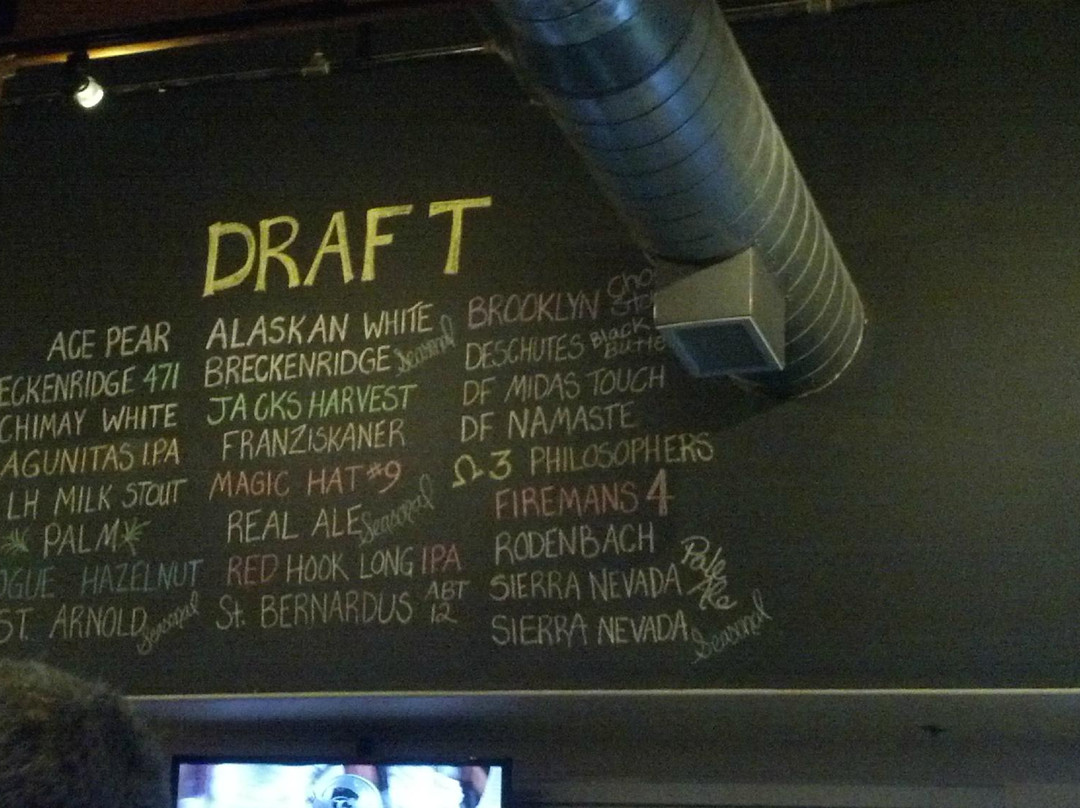 DRAFT
ACE PEAR
ECKENRIDGE 471
CHIMAY WHITE
AGUNITAS I.P.A
LH MILK STOUT
PALM
OGUE HAZELNUT
ST. ARNOLD Seasonal
ALASKAN WHITE
BRECKENRIDGE Seasonal
JACKS HARVEST
FRANZISKANER
MAGIC HAT #9
REAL ALE Seasonal
RED HOOK LONG IPA
St. BERNARDUS ABT 12
BROOKLYN Cho
Sto
DESCHUTES Black
Butte
DF MIDAS TOUCH
DF NAMASTE
Ω 3 PHILOSOPHERS
FIREMANS 4
RODENBACH
SIERRA NEVADA Pale Ale
SIERRA NEVADA Seasonal